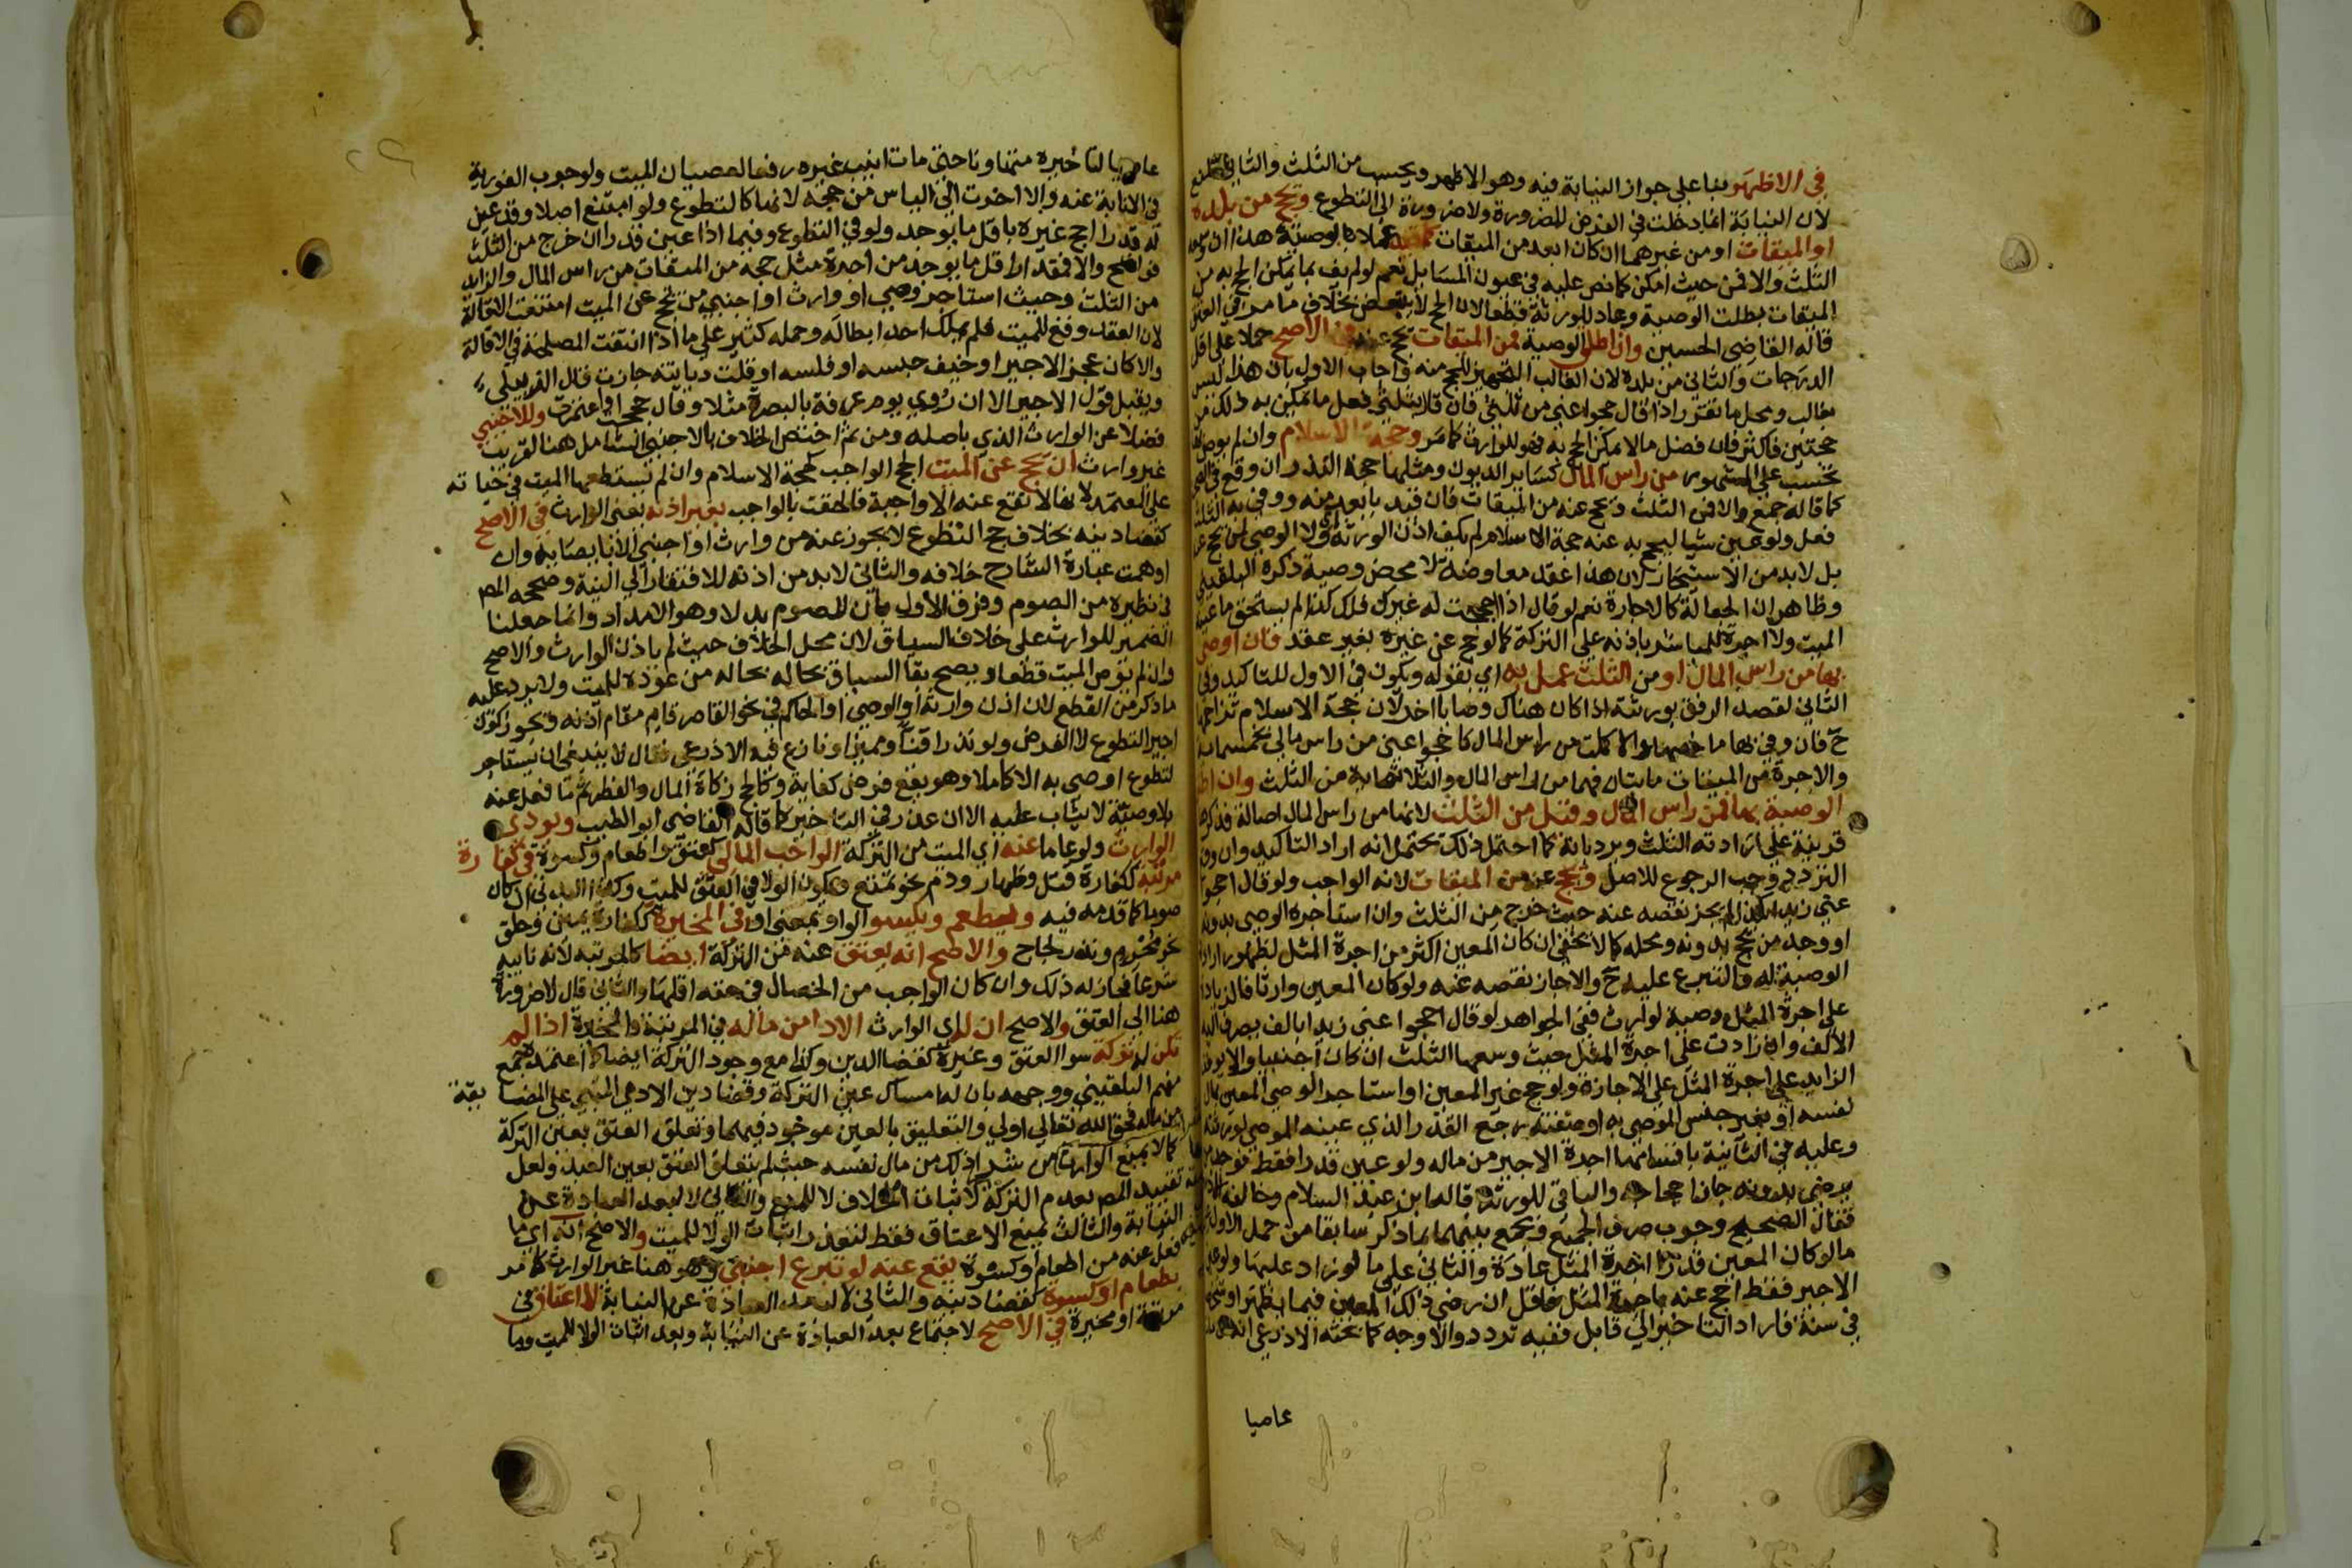 في الاظهر بنا على جواز النيابة فيه وهو الاظهر ويحسب من الثلث والثاني المنع
لان النيابة انما دخلت في الفرض للضرورة ولا ضرورة الى التطوع ويحج من بلده
او الميقات او من غيرهما ان كان ابعد من الميقات عملا بالوصية هذا ان
الثلث والا فمن حيث امكن كما نص عليه في عيون المسايل نعم لو لم يف بما يمكن الحج به من
الميقات بطلت الوصية وعاد للورثة قطعا لان الحج لا يتبعض بخلاف ما مر في العتق
قاله القاضي الحسين وان اطلق الوصية فمن الميقات يحج عنه في الاصح حملا على اقل
الدرجات والثاني من بلده لان الغالب التجهيز للحج منه واجاب الاول بان هذا ليس
بغالب ومحل ما تقرر اذا قال حجوا عني من ثلثي فان قال بثلثي فعل ما يمكن به ذلك من
حجتين فاكثر فان فضل ما لا يمكن الحج به فهو للوارث كما مر وحجة الاسلام وان لم يوص بها
تحسب على المشهور من راس المال كساير الديون ومثلها حجة النذر ان وقع في
كما قاله جمع والا فمن الثلث ويحج عنه من الميقات فان قيد بابعد منه ووفى به الثلث
فعل ولو عين شيا ليحج به عنه حجة الاسلام لم يكف اذن الورثة ولا الوصي لمن يحج عنه
بل لا بد من الاستيجار لان هذا عقد معاوضة لا محض وصية ذكره البلقيني
وظاهر ان الجعالة كالاجارة نعم لو قال اذا احججت له غيرك فلك كذا لم يستحق ما عينه
الميت ولا اجرة للمباشر باذنه على التركة كما لو حج عن غيره بغير عقد فان اوصى
بها من راس المال او من الثلث عمل به اي بقوله ويكون في الاول للتاكيد وفي
الثاني لقصد الرفق بورثته اذا كان هناك وصايا اخر لان حجة الاسلام تزاحمها
ح فان وفى بها ما خصها والا كملت من راس المال كما في حجوا عني من راس مالي بخمسماية
والاجرة من الميقات مايتان فهما من راس المال والثلاثماية من الثلث وان اطلق
الوصية بها فمن راس المال وقيل من الثلث لانها من راس المال اصالة فذكرها
قرينة على ارادته الثلث ويرد بانه كما احتمل ذلك يحتمل انه اراد التاكيد وان وقع
التردد وجب الرجوع للاصل ويحج عنه من الميقات لانه الواجب ولو قال احجوا
عني زيدا بكذا لم يجز نقصه عنه حيث خرج من الثلث وان استاجره الوصي بدونه
او وجد من يحج بدونه ومحله كما لا يخفى ان كان المعين اكثر من اجرة المثل لظهور ارادة
الوصية له والتبرع عليه ح والا جاز نقصه عنه ولو كان المعين وارثا فالزيادة
على اجرة المثل وصية لوارث ففي الجواهر لو قال احجوا عني زيدا بالف يصرف اليه
الالف وان زادت على اجرة المثل حيث وسعها الثلث ان كان اجنبيا والا توقف
الزايد على اجرة المثل على الاجازة ولو حج غير المعين او استاجر الوصي المعين بمال
نفسه او بغير جنس الموصى به او صفته رجع القدر الذي عينه الموصي لورثته
وعليه في الثانية باقسامها اجرة الاجير من ماله ولو عين قدرا فقط فوجد من
يرضى بدونه جاز احجاجه والباقي للورثة قاله ابن عبد السلام وخالفه
فقال الصحيح وجوب صرف الجميع ويجمع بينهما بما ذكر سابقا من حمل الاول على
ما لو كان المعين قدر اجرة المثل عادة والثاني على ما لو زاد عليها ولو عين
الاجير فقط احج عنه باجرة المثل فاقل ان رضي ذلك المعين فيما يظهر او
في سنة فاراد التاخير الى قابل ففيه تردد والاوجه كما بحثه الاذرعي انه
عاصيا
عاصيا لتاخيره متمنا وناحتى مات انيب غيره رفعا لعصيان الميت ولوجوب الفورية
في الانابة عنه والا اخرت الى الياس من حجه لانها كالتطوع ولو امتنع اصلا وقد عين
له قدرا احج غيره باقل ما يوجد ولو في التطوع وفيما اذا عين قدرا ان خرج من الثلث
فواضح والا فمقدار اقل ما يوجد من اجرة مثل حجه من الميقات من راس المال والزايد
من الثلث وحيث استاجر وصي او وارث او اجنبي من يحج عن الميت امتنعت الاقالة
لان العقد وقع للميت فلم يملك احد ابطاله وحمله كثير على ما اذا انتفت المصلحة في الاقالة
والا كان عجز الاجير او خيف حبسه او فلسه او قلت ديانته جازت قال الزبيلي
ويقبل قول الاجير الا ان رؤي يوم عرفة بالبصرة مثلا وقال حججت او اعتمرت وللاجنبي
فضلا عن الوارث الذي باصله ومن ثم اختص الخلاف بالاجنبي الشامل هنا لقريب
غير وارث ان يحج عن الميت الحج الواجب كحجة الاسلام وان لم تستطعها الميت في حياته
على المعتمد لانها لا تقع عنه الا واجبة فالحقت بالواجب بغير اذنه يعني الوارث في الاصح
كقضا دينه بخلاف حج التطوع لا يجوز عنه من وارث او اجنبي الا بايصايه وان
اوهمت عبارة الشارح خلافه والثاني لا بد من اذنه للافتقار الى النية وصححه المص
في نظيره من الصوم وفرق الاول بان للصوم بدلا وهو الامداد وانما جعلنا
الضمير للوارث على خلاف السياق لان محل الخلاف حيث لم ياذن الوارث والاصح
وان لم يوص الميت قطعا ويصح بقا السياق بحاله بحاله من عوده للميت ولا يرد عليه
ما ذكر من القطع لان اذن وارثه او الوصي او الحاكم في نحو القاصر قايم مقام اذنه ويجوز كون
اجير التطوع لا الفرض ولو نذرا قنا ومميزا ونازع فيه الاذرعي فقال لا ينبغي ان يستاجر
لتطوع اوصى به الا كاملا وهو يقع فرض كفاية وكالحج زكاة المال والفطر ثم ما فعل عنه
بلا وصية لا يثاب عليه الا ان عذر في التاخير كما قاله القاضي ابو الطيب ويؤدي
الوارث ولو عاما عنه اي الميت من التركة الواجب المالي كعتق واطعام وكسوة في كفارة
مرتبة ككفارة قتل وظهار ودم نحو تمتع ويكون الولا في العتق للميت وكذا البدني ان كان
صوما كما قدمه فيه ويطعم ويكسو الواو بمعنى او في المخيرة ككفارة يمين وحلق
نحو محرم ونذر لجاج والاصح انه يعتق عنه من التركة ايضا كالمرتبة لانه نايبه
شرعا فجاز له ذلك وان كان الواجب من الخصال في حقه اقلها والثاني قال لا ضرورة
هنا الى العتق والاصح ان له اي الوارث الادا من ماله في المرتبة والمخيرة اذا لم
تكن له تركة سوا العتق وغيره كقضا الدين وكذا مع وجود التركة ايضا كما اعتمده جمع
منهم البلقيني ووجهه بان له امساك عين التركة وقضا دين الادمي المبني على المضايقة
من ماله فحق الله تعالى اولى والتعليق بالعين موجود فيهما وتعلق العتق بعين التركة
كما لا يمنع الوارث من شراء ذلك من مال نفسه حيث لم يتعلق العتق بعين العبد ولعل
تقييد المص بعدم التركة لاثبات الخلاف لا للمنع والثاني لا لبعد العبادة عن
النيابة والثالث يمنع الاعتاق فقط لتعذر اثبات الولا للميت والاصح انه اي ما
فعل عنه من اطعام او كسوة يقع عنه لو تبرع اجنبي وهو هنا غير الوارث كما مر
بطعام او كسوة كقضا دينه والثاني لا لبعد العبادة عن النيابة لا اعتاق في
مرتبة او مخيرة في الاصح لاجتماع بعد العبادة عن النيابة وبعد اثبات الولا للميت وما